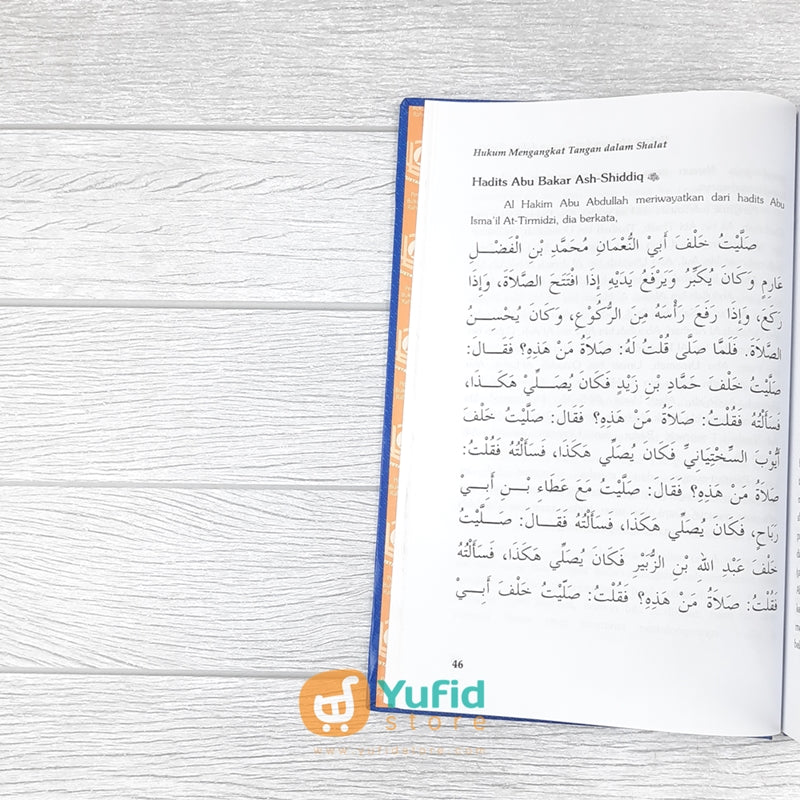 Hukum Mengangkat Tangan dalam Shalat
Hadits Abu Bakar Ash-Shiddiq
Al Hakim Abu Abdullah meriwayatkan dari hadits Abu
Isma'il At-Tirmidzi, dia berkata,
صَلَّيْتُ خَلْفَ أَبِيْ النُّعْمَانِ مُحَمَّدِ بْنِ الْفَضْلِ
عَارِمٍ وَكَانَ يُكَبِّرُ وَيَرْفَعُ يَدَيْهِ إِذَا افْتَتَحَ الصَّلاَةَ، وَإِذَا
رَكَعَ، وَإِذَا رَفَعَ رَأْسَهُ مِنَ الرُّكُوْعِ، وَكَانَ يُحْسِنُ
الصَّلاَةَ. فَلَمَّا صَلَّى قُلْتُ لَهُ: صَلاَةُ مَنْ هَذِهِ؟ فَقَالَ:
صَلَّيْتُ خَلْفَ حَمَّادِ بْنِ زَيْدٍ فَكَانَ يُصَلِّيْ هَكَذَا،
فَسَأَلْتُهُ فَقُلْتُ: صَلاَةُ مَنْ هَذِهِ؟ فَقَالَ: صَلَّيْتُ خَلْفَ
أَيُّوْبَ السِّخْتِيَانِيِّ فَكَانَ يُصَلِّي هَكَذَا، فَسَأَلْتُهُ فَقُلْتُ:
صَلاَةُ مَنْ هَذِهِ؟ فَقَالَ: صَلَّيْتُ مَعَ عَطَاءِ بْنِ أَبِيْ
رَبَاحٍ، فَكَانَ يُصَلِّي هَكَذَا، فَسَأَلْتُهُ فَقَالَ: صَلَّيْتُ
خَلْفَ عَبْدِ اللهِ بْنِ الزُّبَيْرِ فَكَانَ يُصَلِّي هَكَذَا، فَسَأَلْتُهُ
فَقُلْتُ: صَلاَةُ مَنْ هَذِهِ؟ فَقُلْتُ: صَلَّيْتُ خَلْفَ أَبِيْ
46
Yufid
store
www.yufidstore.com